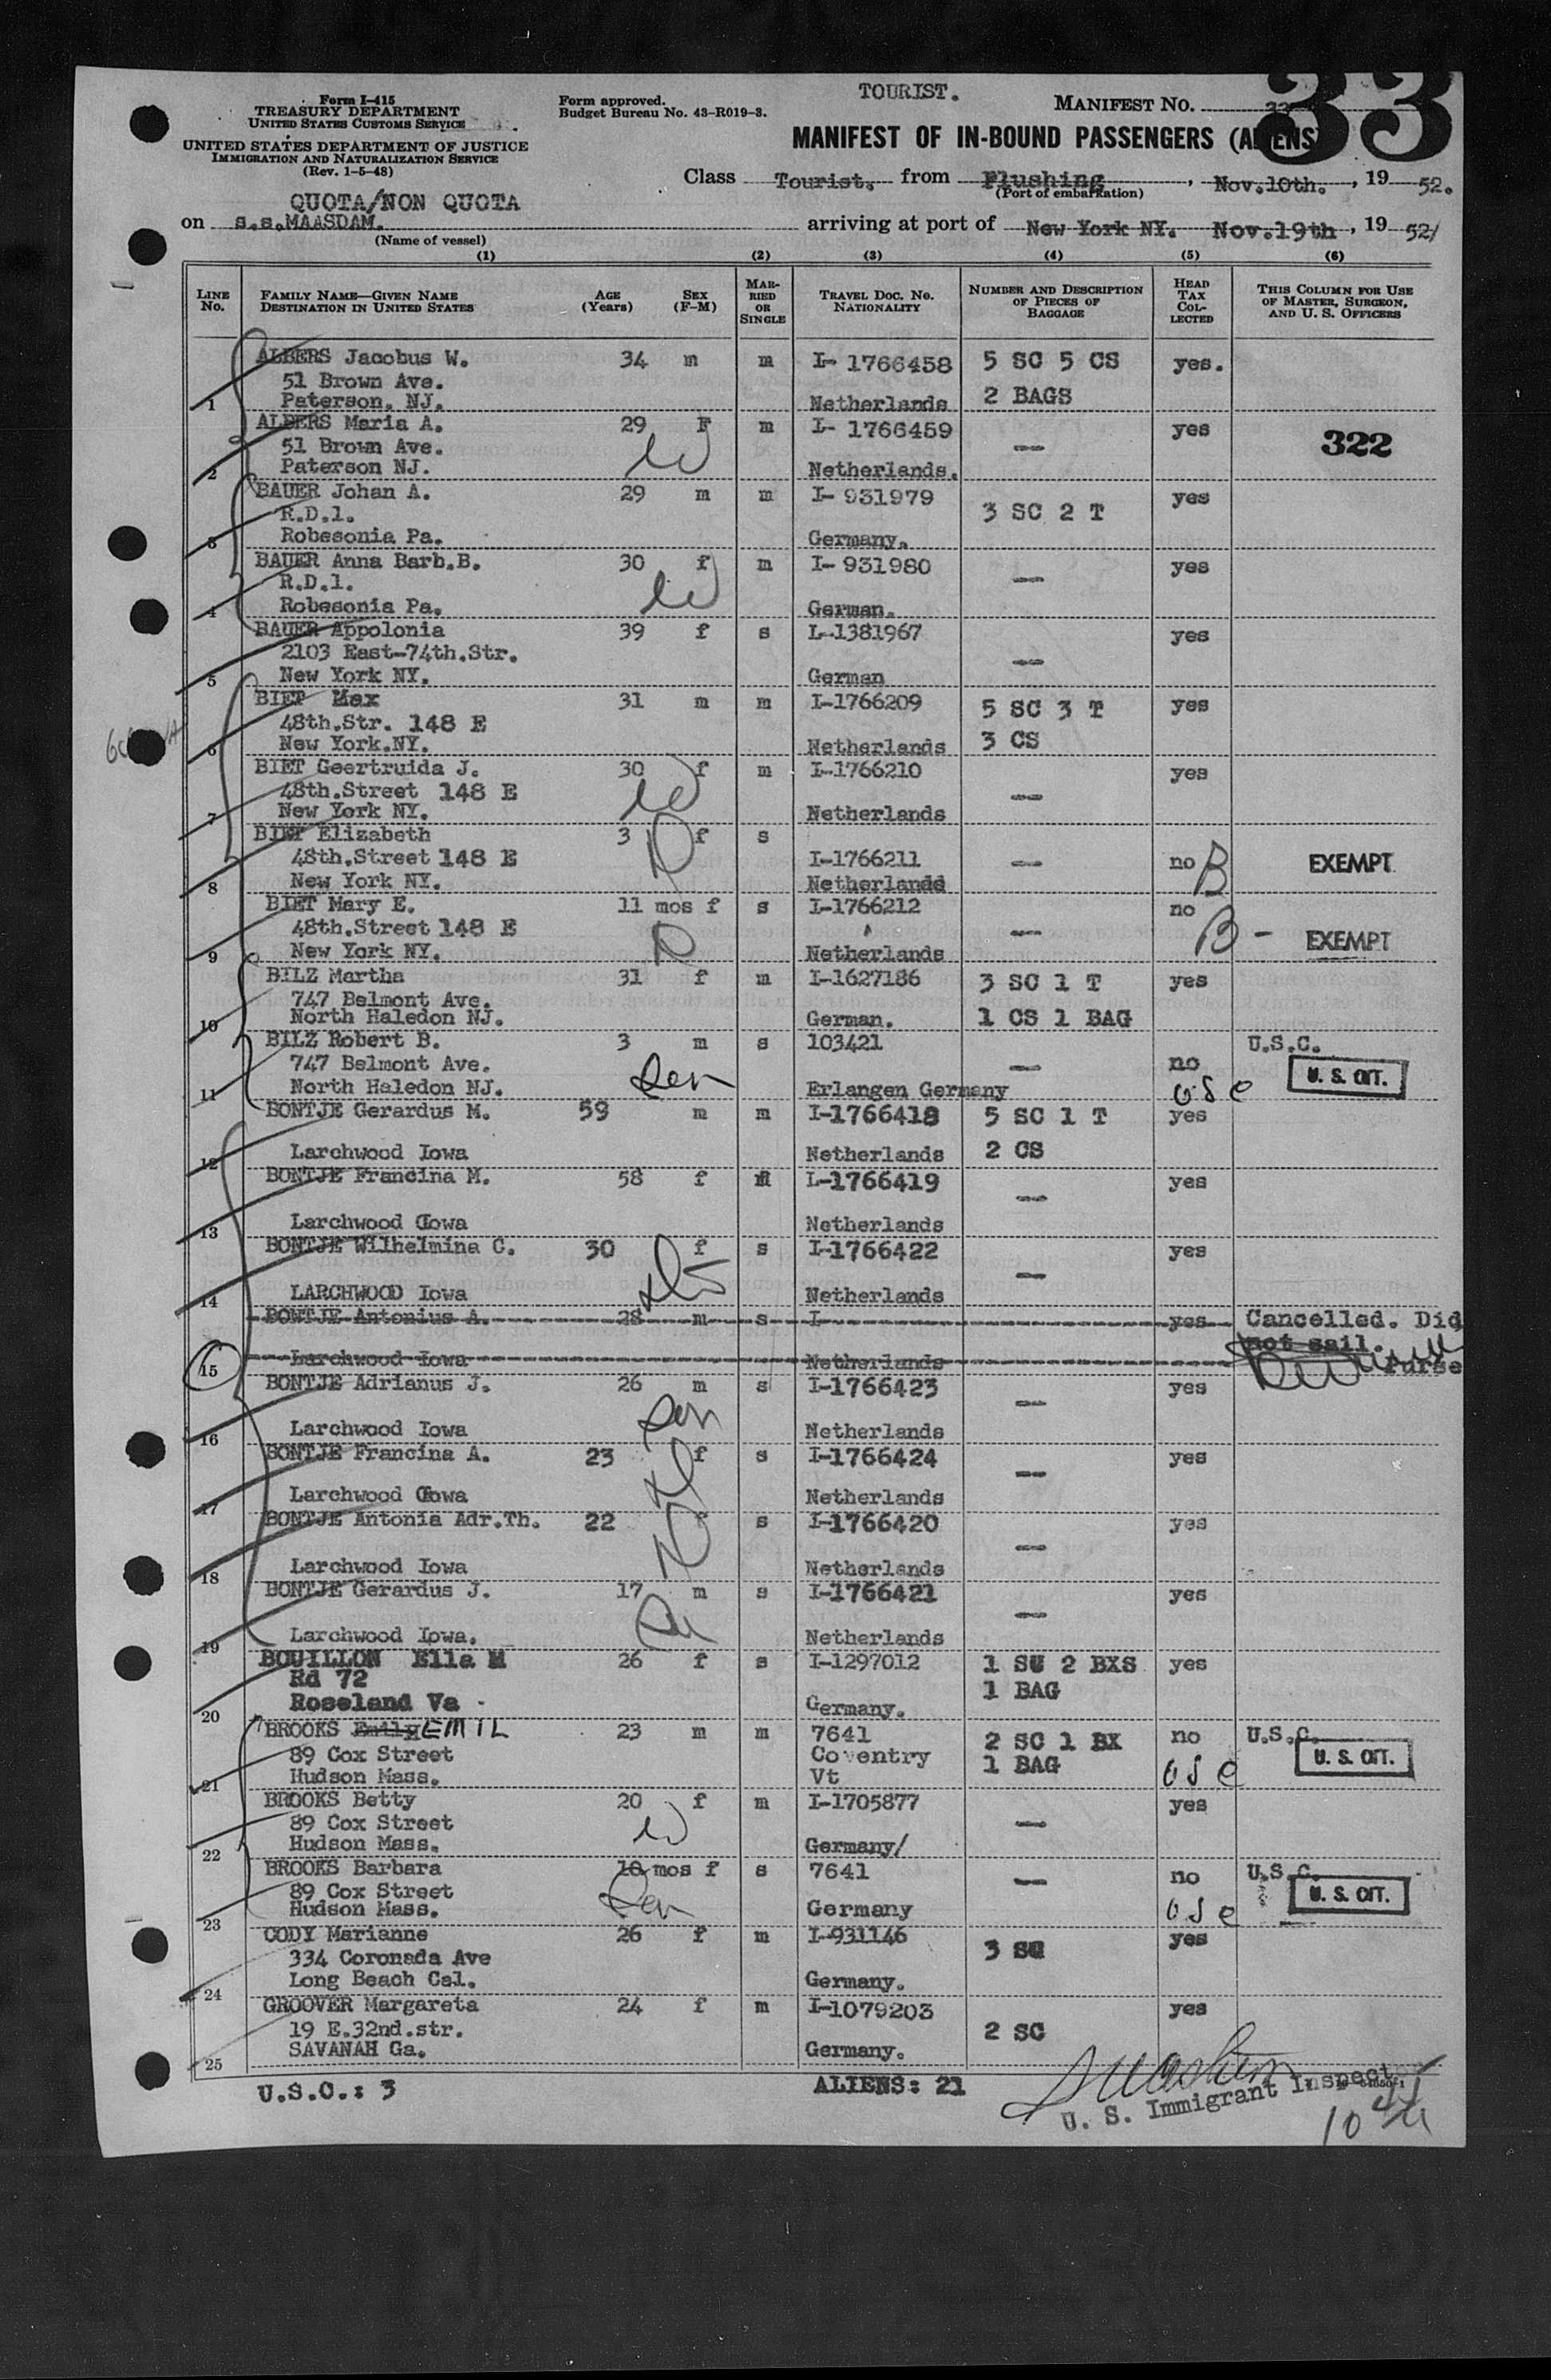 TOURIST.
Form I-415
TREASURY DEPARTMENT
UNITED STATES CUSTOMS SERVICE
Form approved.
Budget Bureau No. 43-R019-3.
MANIFEST NO. 33
33
UNITED STATES DEPARTMENT OF JUSTICE
IMMIGRATION AND NATURALIZATION SERVICE
(Rev. 1-5-48)
MANIFEST OF IN-BOUND PASSENGERS (ALIENS)
Class Tourist. from Flushing, Nov.10th., 19 52.
(Port of embarkation)
QUOTA/NON QUOTA
on s.s.MAASDAM. arriving at port of New York NY. Nov.19th, 19 52/
(Name of vessel)
(1) (2) (3) (4) (5) (6)
LINE No. FAMILY NAME—GIVEN NAME DESTINATION IN UNITED STATES AGE (Years) SEX (F-M) MARRIED OR SINGLE TRAVEL DOC. NO. NATIONALITY NUMBER AND DESCRIPTION OF PIECES OF BAGGAGE HEAD TAX COLLECTED THIS COLUMN FOR USE OF MASTER, SURGEON, AND U. S. OFFICERS
ALBERS Jacobus W. 34 m m I- 1766458 5 SC 5 CS yes.
51 Brown Ave.
1 Paterson, NJ. Netherlands 2 BAGS
ALBERS Maria A. 29 F m I- 1766459 — yes 322
51 Brown Ave.
2 Paterson NJ. Netherlands.
BAUER Johan A. 29 m m I- 931979 3 SC 2 T yes
R.D.1.
3 Robesonia Pa. Germany.
BAUER Anna Barb.B. 30 f m I- 931980 — yes
R.D.1.
4 Robesonia Pa. German.
BAUER Appolonia 39 f s I-1381967 — yes
2103 East-74th.Str.
5 New York NY. German
BIET Max 31 m m I-1766209 5 SC 3 T yes
48th.Str. 148 E
6 New York.NY. Netherlands 3 CS
BIET Geertruida J. 30 f m I-1766210 — yes
48th.Street 148 E
7 New York NY. Netherlands
BIET Elizabeth 3 f s
48th.Street 148 E I-1766211 — no B EXEMPT
8 New York NY. Netherlandd
BIET Mary E. 11 mos f s I-1766212 no
48th.Street 148 E — B - EXEMPT
9 New York NY. Netherlands
BILZ Martha 31 f m I-1627186 3 SC 1 T yes
747 Belmont Ave.
10 North Haledon NJ. German. 1 CS 1 BAG
BILZ Robert B. 3 m s 103421 U.S.C.
747 Belmont Ave. — no U. S. CIT.
11 North Haledon NJ. Erlangen Germany usc
BONTJE Gerardus M. 59 m m I-1766418 5 SC 1 T yes
12 Larchwood Iowa Netherlands 2 CS
BONTJE Francina M. 58 f m I-1766419 — yes
13 Larchwood Iowa Netherlands
BONTJE Wilhelmina C. 30 f s I-1766422 — yes
14 LARCHWOOD Iowa Netherlands
BONTJE Antonius A. 28 m s I yes Cancelled. Did
not sail.
15 Larchwood Iowa Netherlands Purse
BONTJE Adrianus J. 26 m s I-1766423 — yes
16 Larchwood Iowa Netherlands
BONTJE Francina A. 23 f s I-1766424 — yes
17 Larchwood Iowa Netherlands
BONTJE Antonia Adr.Th. 22 s I-1766420 — yes
18 Larchwood Iowa Netherlands
BONTJE Gerardus J. 17 m s I-1766421 — yes
19 Larchwood Iowa. Netherlands
BOUILLON Ella M 26 f s I-1297012 1 SU 2 BXS yes
Rd 72 1 BAG
20 Roseland Va Germany.
BROOKS Emily EMIL 23 m m 7641 2 SC 1 BX no U.S.C.
89 Cox Street Coventry 1 BAG usc U. S. CIT.
21 Hudson Mass. Vt
BROOKS Betty 20 f m I-1705877 — yes
89 Cox Street
22 Hudson Mass. Germany/
BROOKS Barbara 10 mos f s 7641 — no U.S.C.
89 Cox Street U. S. CIT.
23 Hudson Mass. Germany usc
CODY Marianne 26 f m I-931146 3 SC yes
334 Coronada Ave
24 Long Beach Cal. Germany.
GROOVER Margareta 24 f m I-1079203 yes
19 E.32nd.str. 2 SC
25 SAVANAH Ga. Germany.
U.S.C.: 3 ALIENS: 21
U. S. Immigrant Inspector